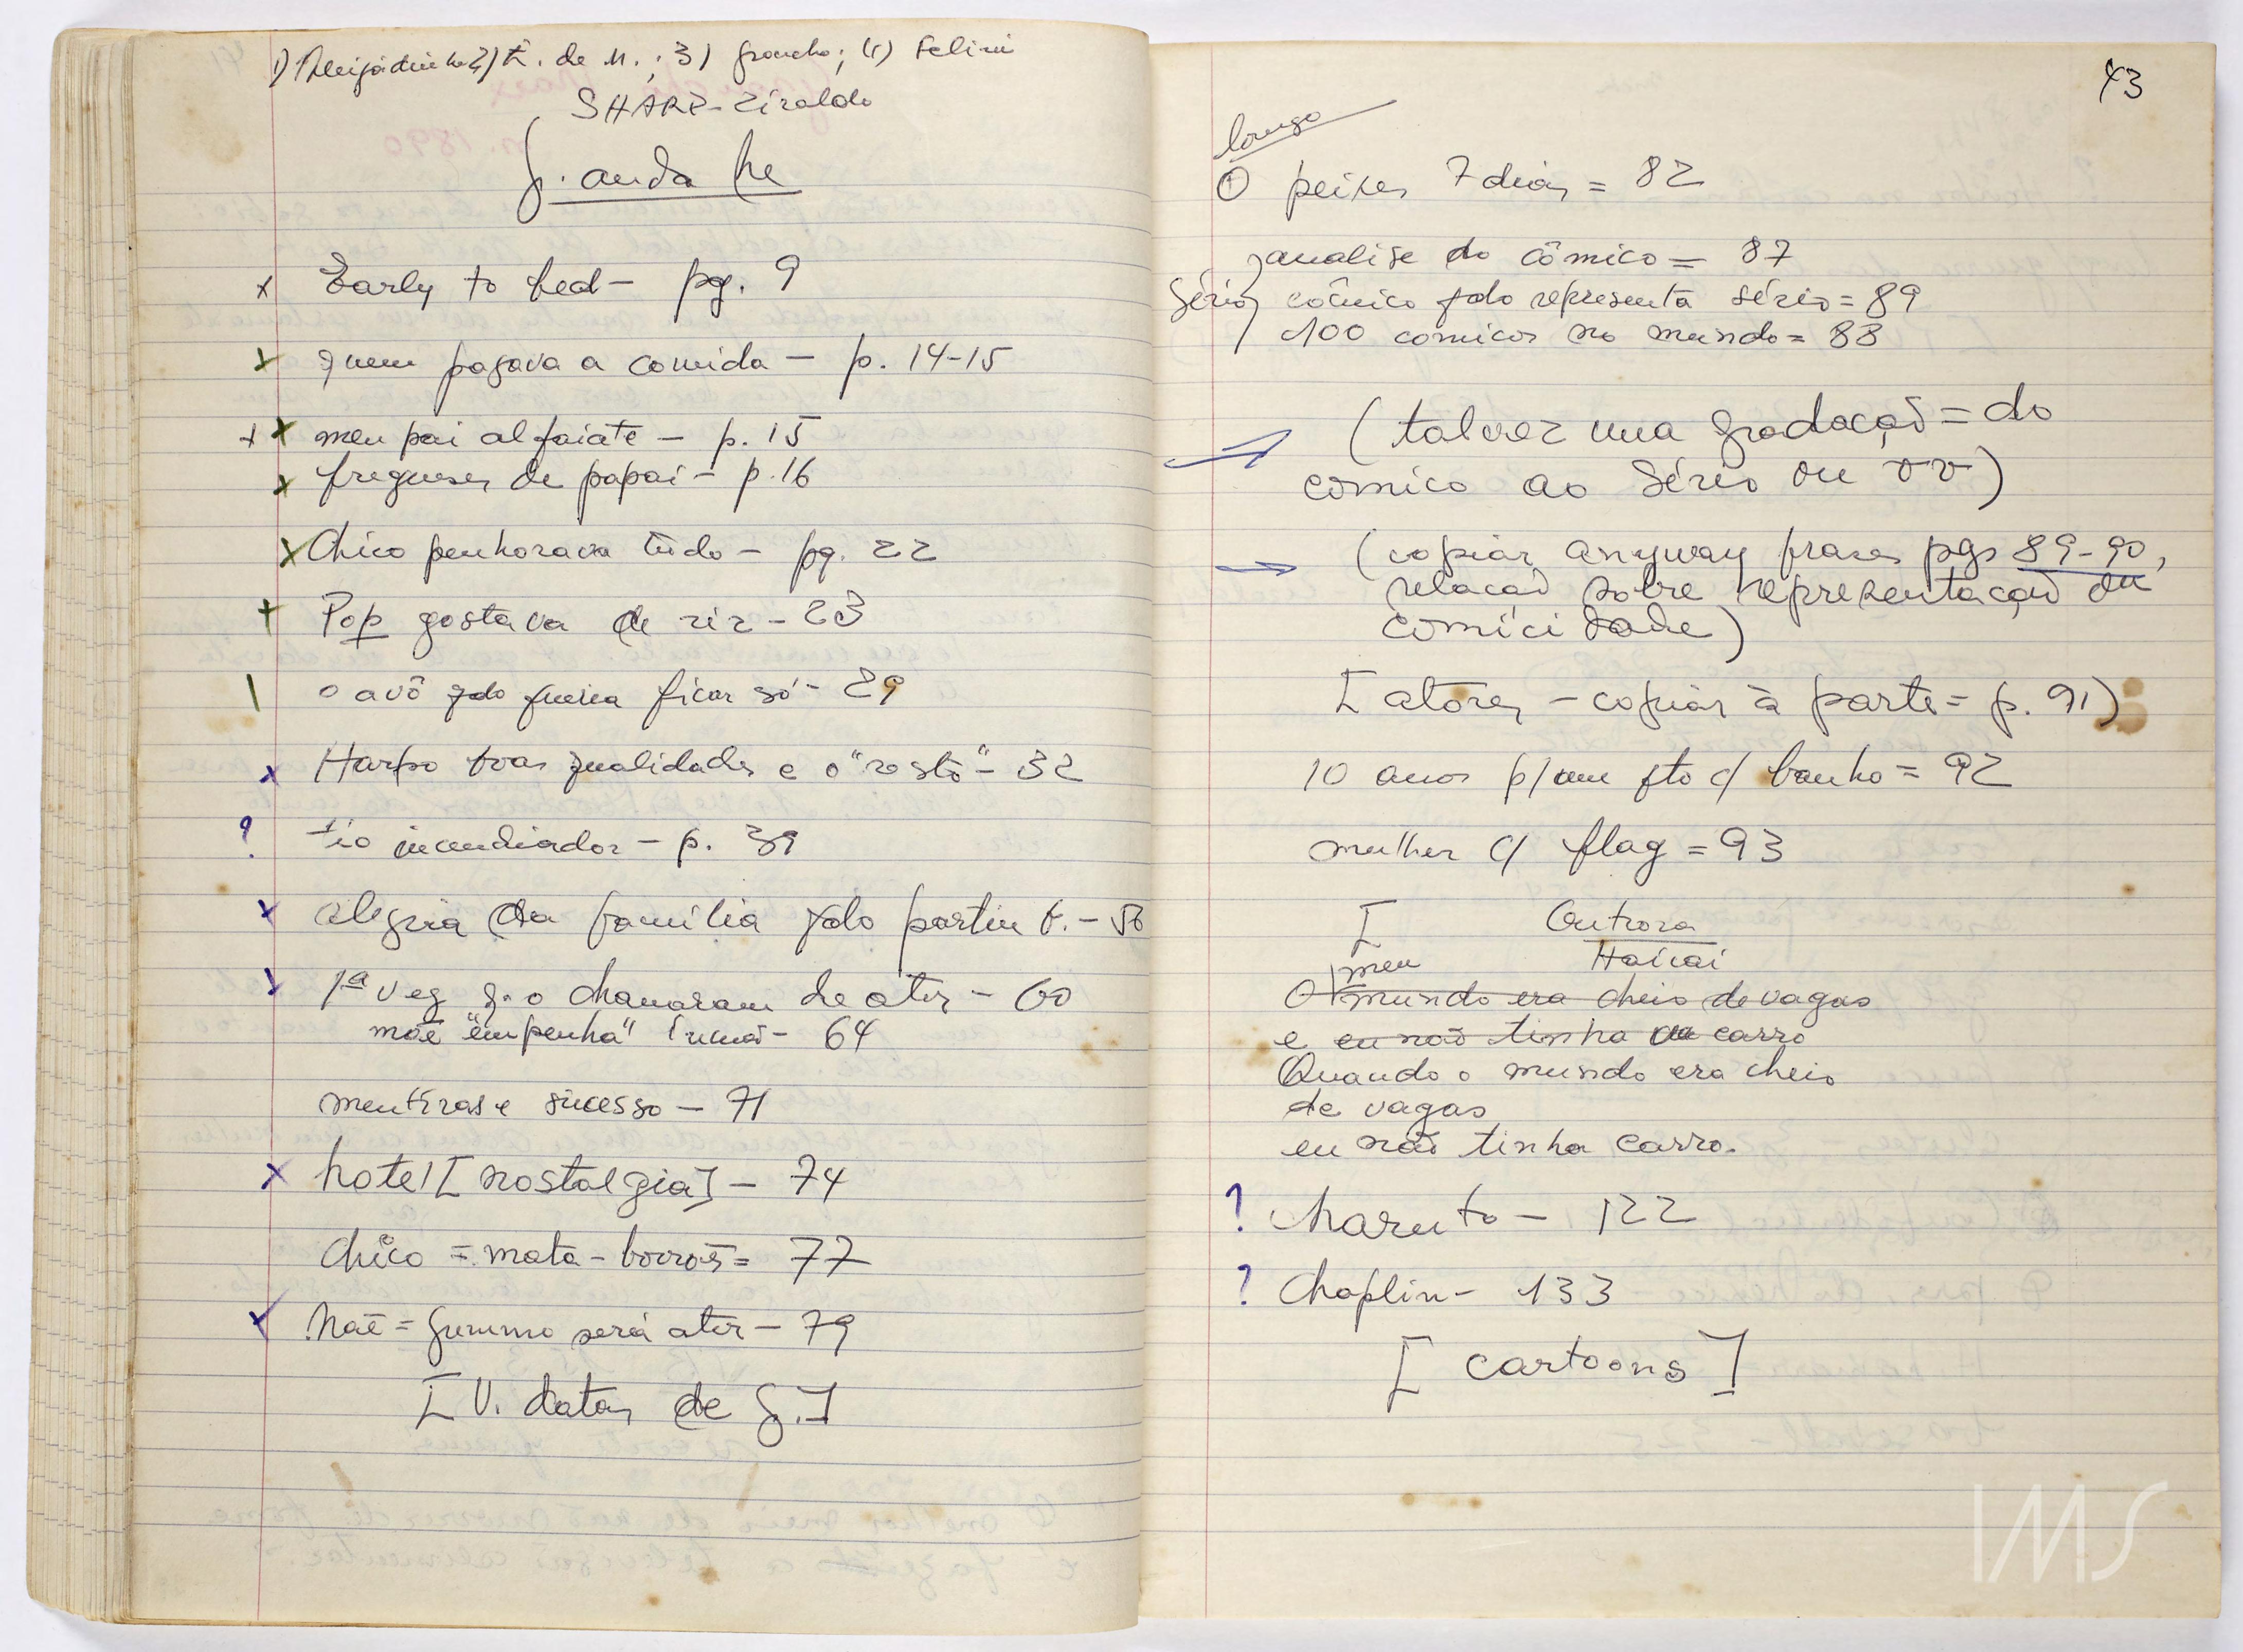 1) Aleijadinho 2) T. de M.; 3) Groucho; (4) Felini
SHARP - Ziraldo
G. and he
x Early to bed - pg. 9
x quem pagava a comida - p. 14-15
+ x meu pai alfaiate - p. 15
x fregueses de papai - p. 16
x Chico penhorava tudo - pg. 22
+ Pop gostava de rir - 23
| o avô qdo queria ficar só - 29
x Harpo boas qualidades e o "rosto" - 32
? tio incendiador - p. 39
x alegria da família qdo partiu G. - 56
1ª vez q. o chamaram de ator - 60
mãe "empenha" irmão - 64
mentiras e sucesso - 71
x hotel [nostalgia] - 74
Chico = mata-borrão = 77
Mãe = Gummo será ator - 79
[V. datas de G.]
43
longo
peixes 7 dias = 82
analise do cômico = 87
Sério cômico qdo representa sério = 89
100 comicos no mundo = 88
→ (talvez uma gradação = do
comico ao Sério ou vv)
→ (copiar anyway frases pgs 89-90,
relação sobre representação ou
comicidade)
[atores - copiar à parte = p. 91)
10 anos p/ um qto c/ banho = 92
mulher c/ flag = 93
[ Outrora
Haicai
meu
O mundo era cheio de vagas
e eu não tinha carro
Quando o mundo era cheio
de vagas
eu não tinha carro.
? charuto - 122
? Chaplin - 133
[cartoons]
IMS